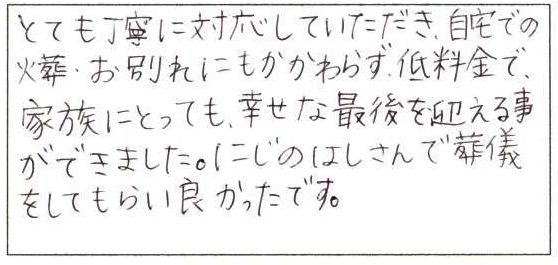 とても丁寧に対応していただき、自宅での
火葬・お別れにもかかわらず、低料金で、
家族にとっても、幸せな最後を迎える事
ができました。にじのはしさんで葬儀
をしてもらい良かったです。